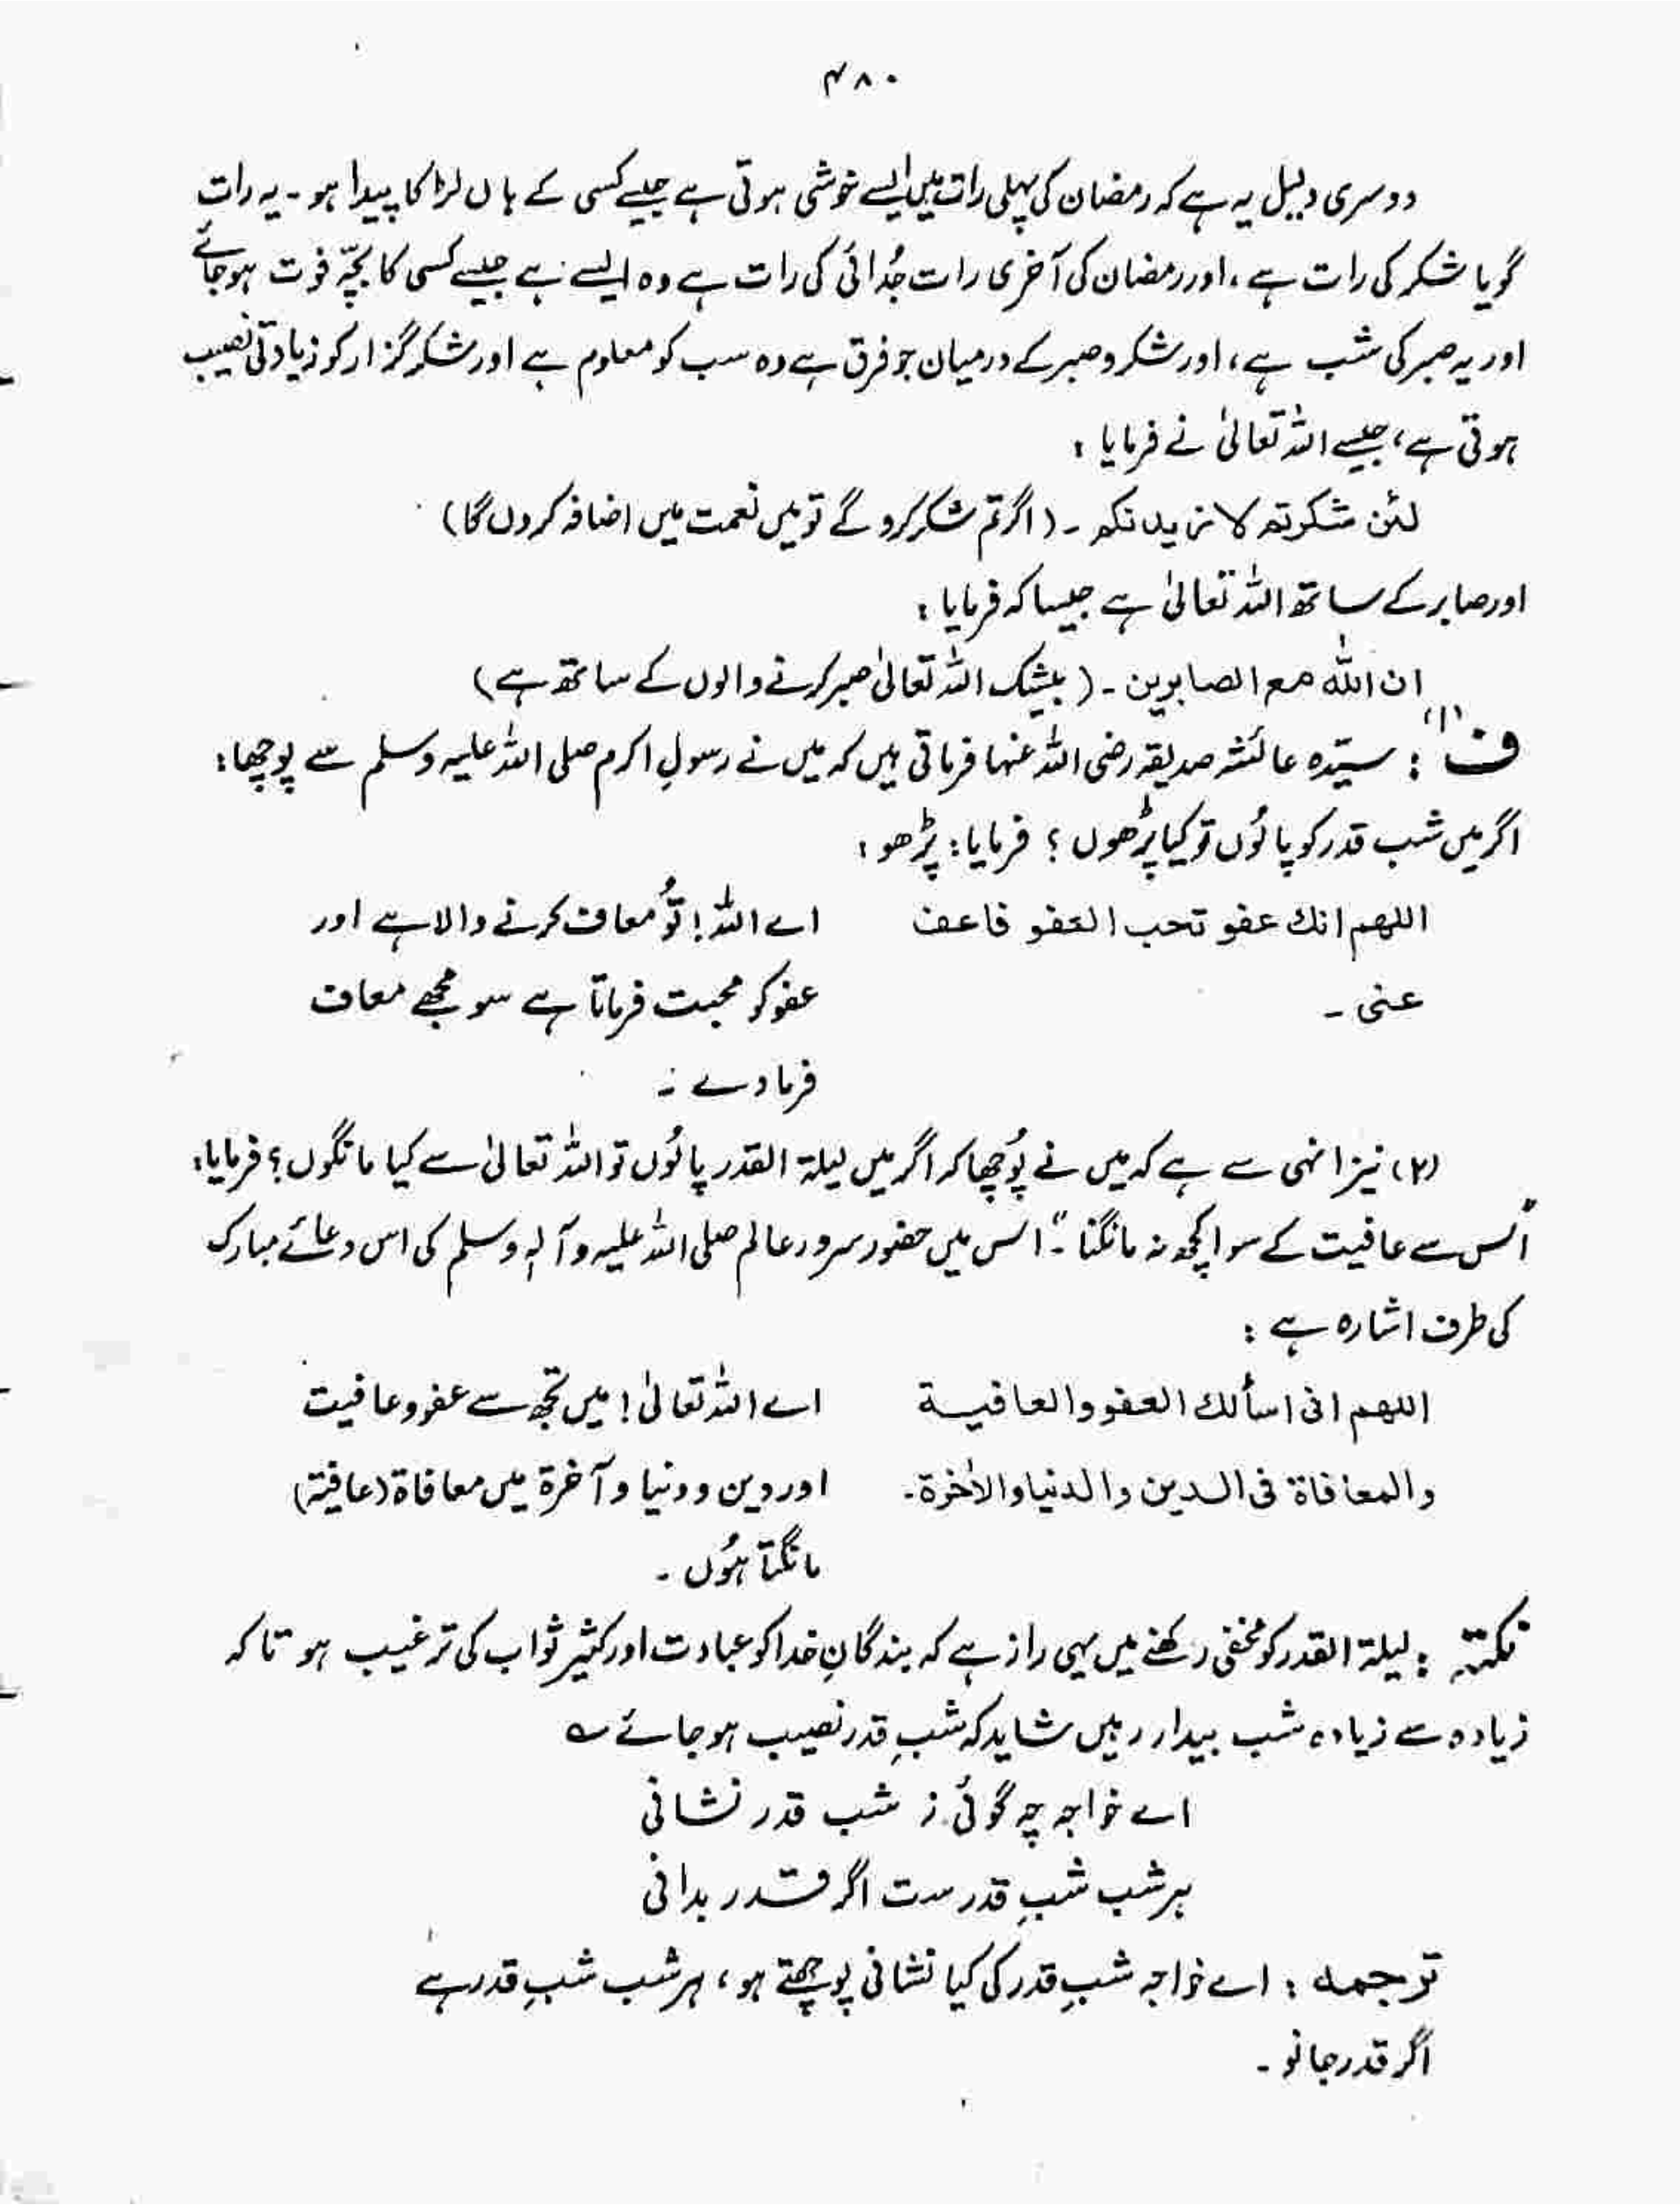 ۴۸۰
دوسری دلیل یہ ہے کہ رمضان کی پہلی رات میں ایسے خوشی ہوتی ہے جیسے کسی کے ہاں لڑکا پیدا ہو۔ یہ رات
گویا شکر کی رات ہے، اور رمضان کی آخری رات جُدائی کی رات ہے وہ ایسے ہے جیسے کسی کا بچّہ فوت ہوجائے
اور یہ صبر کی شب ہے، اور شکر و صبر کے درمیان جو فرق ہے وہ سب کو معلوم ہے اور شکر گزار کو زیادتی نصیب
ہوتی ہے، جیسے اللہ تعالیٰ نے فرمایا :
لئن شکرتم لازیدنکم ۔ (اگر تم شکر کرو گے تو میں نعمت میں اضافہ کردوں گا)
اور صابر کے ساتھ اللہ تعالیٰ ہے جیسا کہ فرمایا :
ان اللہ مع الصابرین ۔ (بیشک اللہ تعالیٰ صبر کرنے والوں کے ساتھ ہے)
ف(۱) : سیّدہ عائشہ صدیقہ رضی اللہ عنہا فرماتی ہیں کہ میں نے رسولِ اکرم صلی اللہ علیہ وسلم سے پوچھا :
اگر میں شب قدر کو پاؤں تو کیا پڑھوں ؟ فرمایا : پڑھو :
اللهم انك عفو تحب العفو فاعف اے اللہ! تُو معاف کرنے والا ہے اور
عنی ۔ عفو کو محبت فرماتا ہے سو مجھے معاف
فرمادے ۔
(۲) نیز انہی سے ہے کہ میں نے پُوچھا کہ اگر میں لیلۃ القدر پاؤں تو اللہ تعالیٰ سے کیا مانگوں؟ فرمایا :
"اُس سے عافیت کے سوا کچھ نہ مانگنا"۔ اس میں حضور سرور عالم صلی اللہ علیہ وآلہٖ وسلم کی اس دعائے مبارک
کی طرف اشارہ ہے :
اللهم انی اسألك العفو والعافیة اے اللہ تعالیٰ! میں تجھ سے عفو و عافیت
والمعافاة فی الدین والدنیا والاٰخرة۔ اور دین و دنیا و آخرۃ میں معافاۃ (عافیۃ)
مانگتا ہُوں ۔
نکتہ : لیلۃ القدر کو مخفی رکھنے میں یہی راز ہے کہ بندگانِ خدا کو عبادت اور کثیر ثواب کی ترغیب ہو تاکہ
زیادہ سے زیادہ شب بیدار رہیں شاید کہ شبِ قدر نصیب ہوجائے ؎
اے خواجہ چہ گوئی ز شب قدر نشانی
ہر شب شبِ قدر ست اگر قدر بدانی
ترجمہ : اے خواجہ شبِ قدر کی کیا نشانی پوچھتے ہو، ہر شب شبِ قدر ہے
اگر قدر جانو ۔